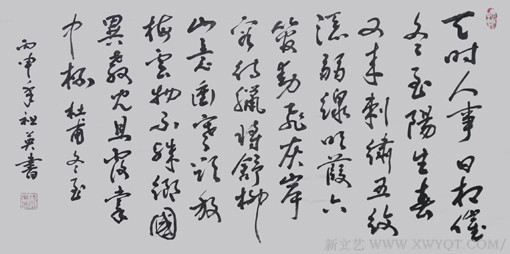 天时人事日相催
冬至陽生春
又来刺绣五纹
添弱線吹葭六
管動飛灰岸
容待臘將舒柳
山意衝寒欲放
梅雲物不殊鄉國
異教兒且覆掌
中杯 杜甫冬至
丙申年祖英書
新文艺 WWW.XWYQT.COM